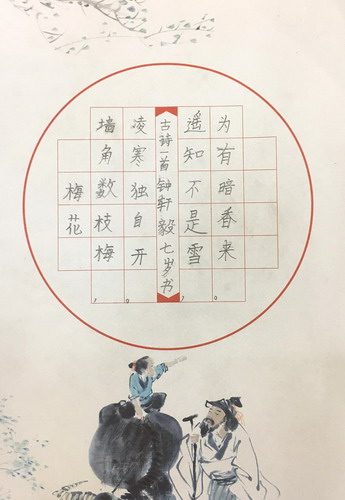 梅花
墙角数枝梅，
凌寒独自开。
古诗一首钟轩毅七岁书
遥知不是雪，
为有暗香来。